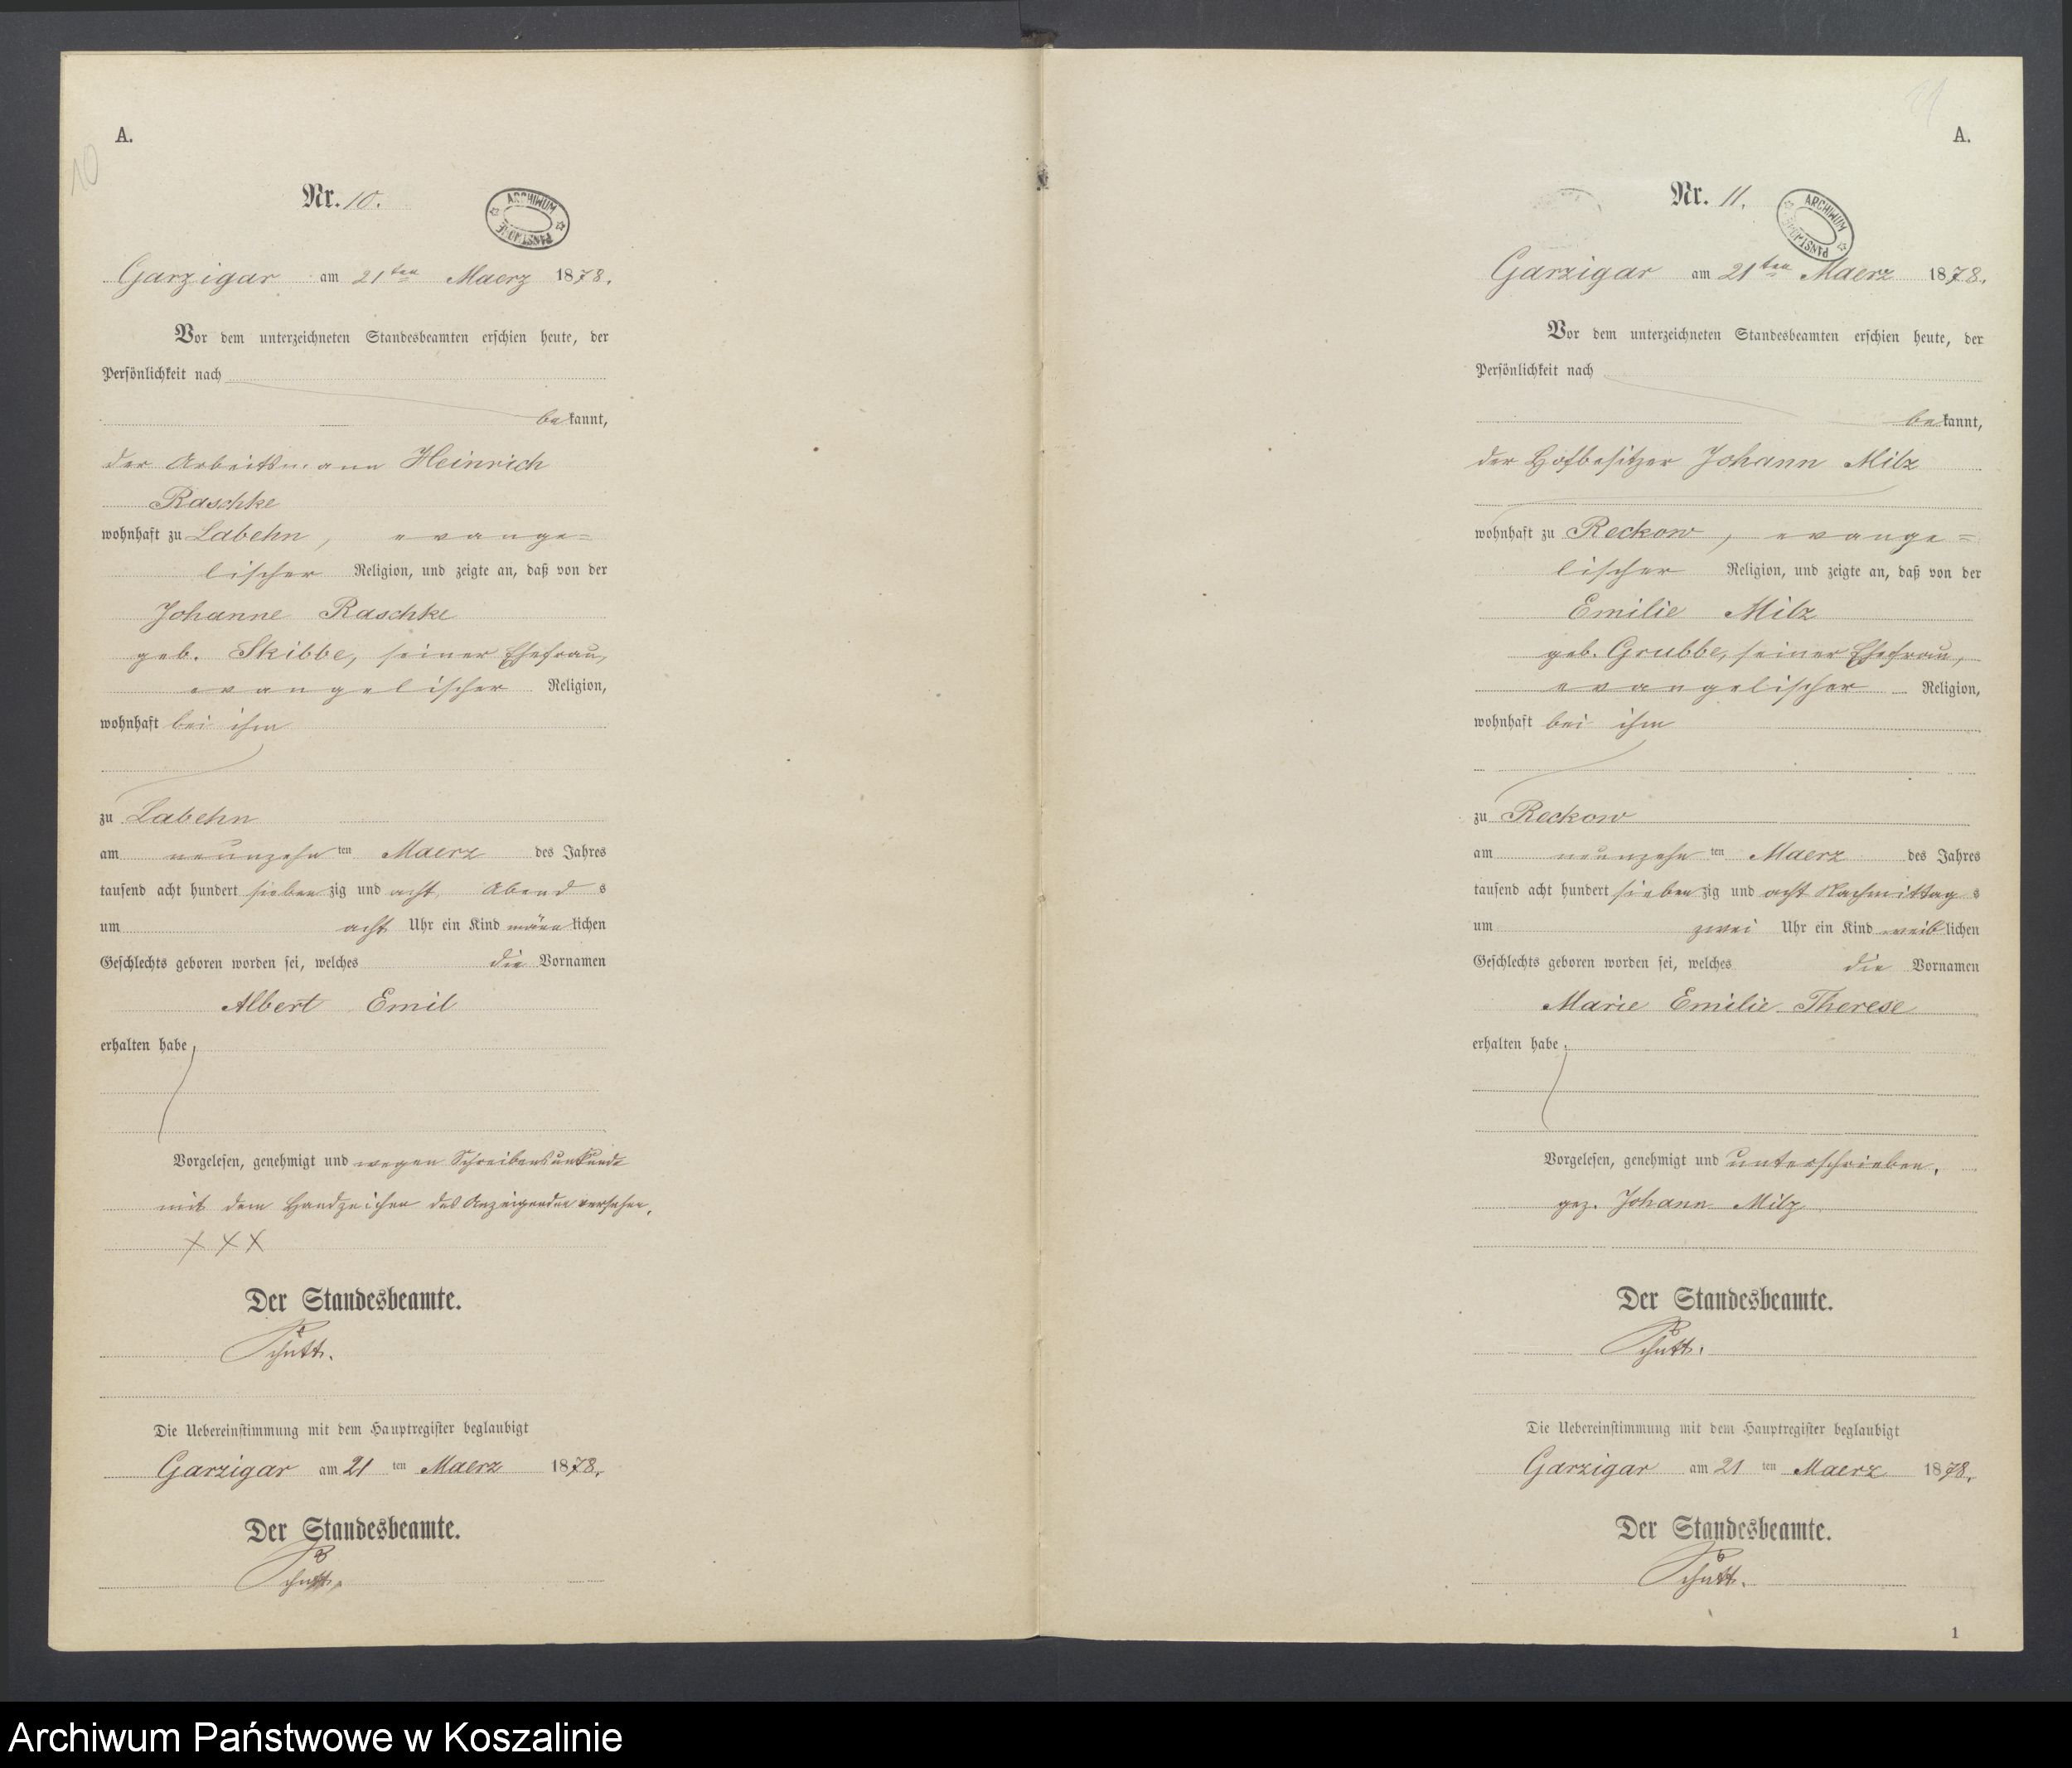 A.
10
Nr. 10.
ARCHIWUM PAŃSTWOWE
Garzigar am 21ten Maerz 1878.
Vor dem unterzeichneten Standesbeamten erschien heute, der
Persönlichkeit nach
bekannt,
der Arbeitsmann Heinrich
Raschke
wohnhaft zu Labehn, evange=
lischer Religion, und zeigte an, daß von der
Johanne Raschke
geb. Skibbe, seiner Ehefrau,
evangelischer Religion,
wohnhaft bei ihm
zu Labehn
am neunzehnten Maerz des Jahres
tausend acht hundert siebenzig und acht Abends
um acht Uhr ein Kind männlichen
Geschlechts geboren worden sei, welches die Vornamen
Albert Emil
erhalten habe,
Vorgelesen, genehmigt und wegen Schreibensunkunde
mit dem Handzeichen des Anzeigenden versehen.
XXX
Der Standesbeamte.
Schütt.
Die Uebereinstimmung mit dem Hauptregister beglaubigt
Garzigar am 21ten Maerz 1878.
Der Standesbeamte.
Schütt.
11
A.
Nr. 11.
ARCHIWUM PAŃSTWOWE
Garzigar am 21ten Maerz 1878.
Vor dem unterzeichneten Standesbeamten erschien heute, der
Persönlichkeit nach
bekannt,
der Hofbesitzer Johann Milz
wohnhaft zu Reckow, evange=
lischer Religion, und zeigte an, daß von der
Emilie Milz
geb. Grubbe, seiner Ehefrau,
evangelischer Religion,
wohnhaft bei ihm
zu Reckow
am neunzehnten Maerz des Jahres
tausend acht hundert siebenzig und acht Nachmittags
um zwei Uhr ein Kind weiblichen
Geschlechts geboren worden sei, welches die Vornamen
Marie Emilie Therese
erhalten habe.
Vorgelesen, genehmigt und unterschrieben.
gez. Johann Milz
Der Standesbeamte.
Schütt.
Die Uebereinstimmung mit dem Hauptregister beglaubigt
Garzigar am 21ten Maerz 1878.
Der Standesbeamte.
Schütt.
1
Archiwum Państwowe w Koszalinie